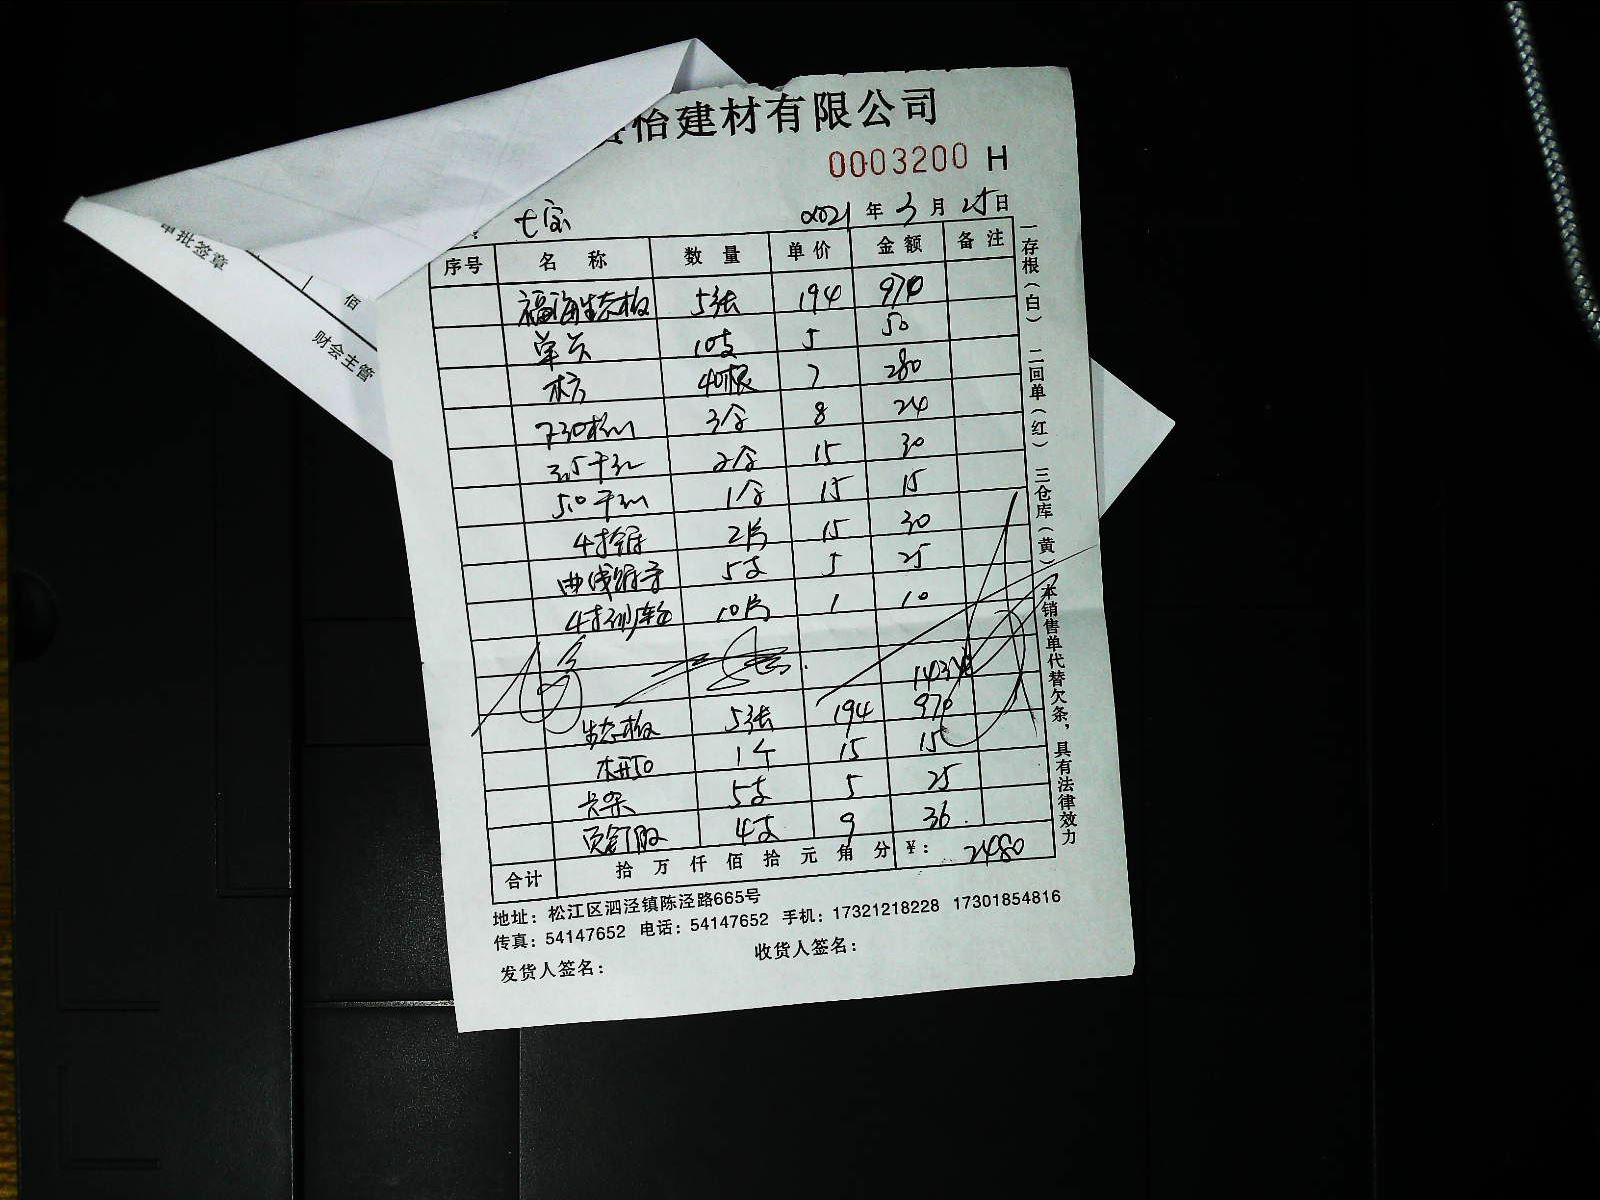 怡建材有限公司
0003200 H
七宝 2021 年 3 月 25 日
序号 名称 数量 单价 金额 备注
福海生态板 5张 194 970
单头 10支 5 50
木方 40根 7 280
F30枪钉 3盒 8 24
3.5干钉 2盒 15 30
5.0干钉 1盒 15 15
4寸锯片 2片 15 30
曲线锯条 5支 5 25
4寸 10片 1 10
1434
生态板 5张 194 970
木开50 1个 15 15
5支 5 25
4支 9 36
合计 拾 万 仟 佰 拾 元 角 分 ¥: 2480
地址：松江区泗泾镇陈泾路665号
传真：54147652 电话：54147652 手机：17321218228 17301854816
发货人签名： 收货人签名：
一存根（白） 二回单（红） 三仓库（黄） 本销售单代替欠条，具有法律效力
审批签章
佰
财会主管